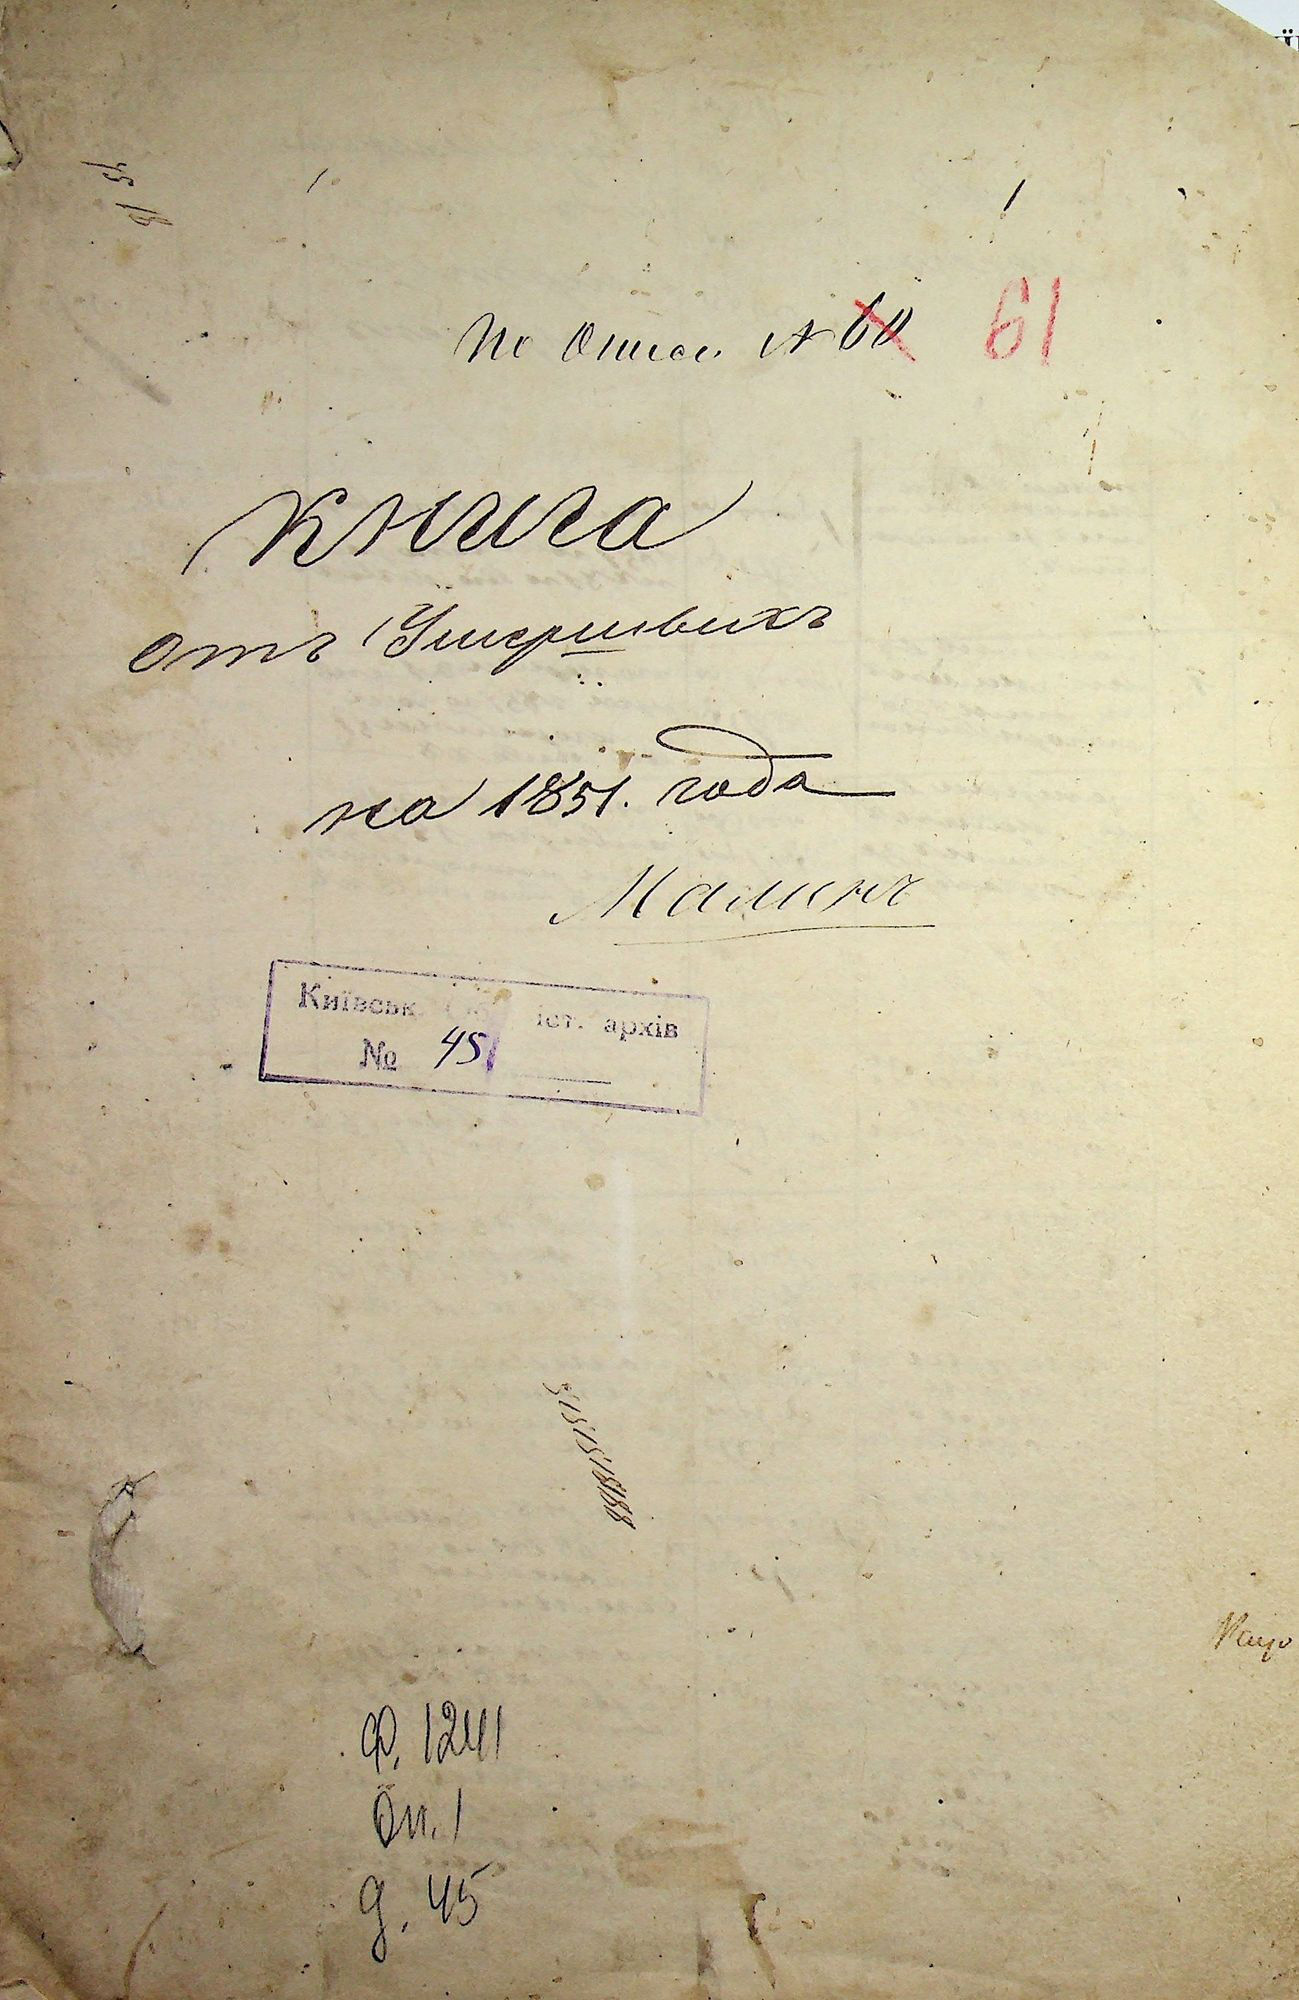 По Описи № 60 61
Книга
отъ Умершвихъ
на 1851. года
Малинъ
Київськ. іст. архів
№ 45
Ф. 1241
Оп. 1
д. 45